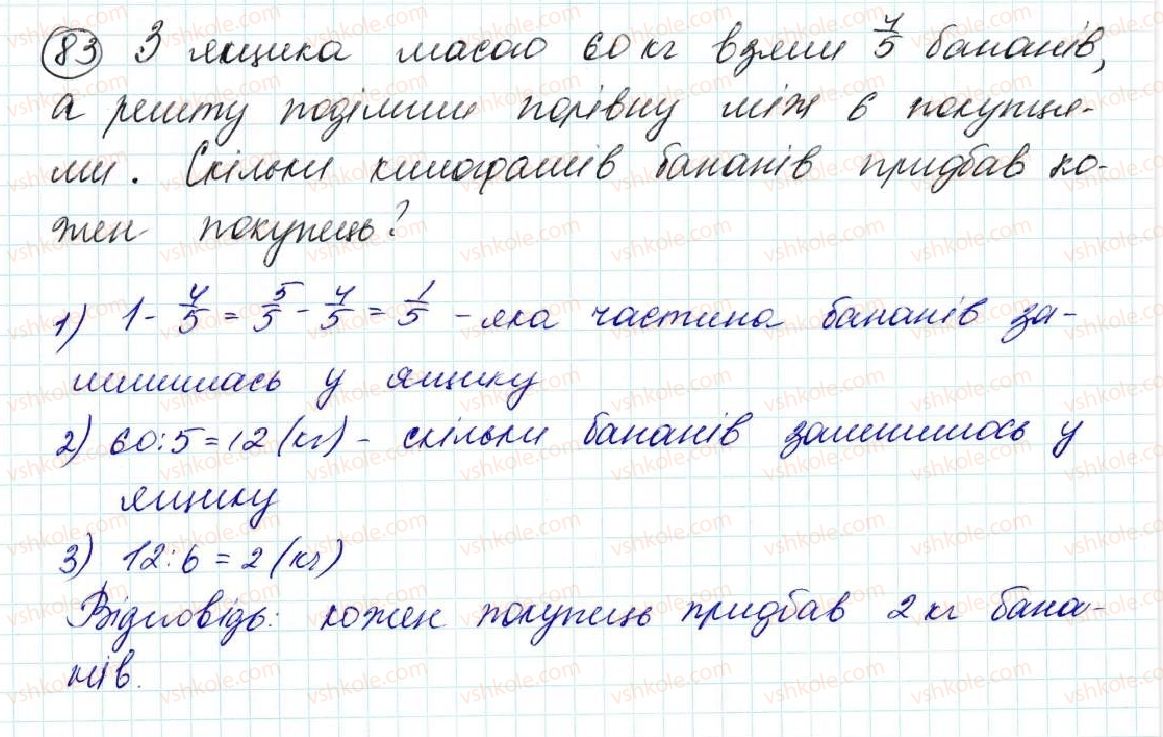 83 З ящика масою 60 кг взяли 4/5 бананів,
а решту поділили порівну між 6 покупця-
ми. Скільки кілограмів бананів придбав ко-
жен покупець?
1) 1 - 4/5 = 5/5 - 4/5 = 1/5 - яка частина бананів за-
лишилась у ящику
2) 60:5=12 (кг) - скільки бананів залишилось у
ящику
3) 12:6 = 2 (кг)
Відповідь: кожен покупець придбав 2 кг бана-
нів.